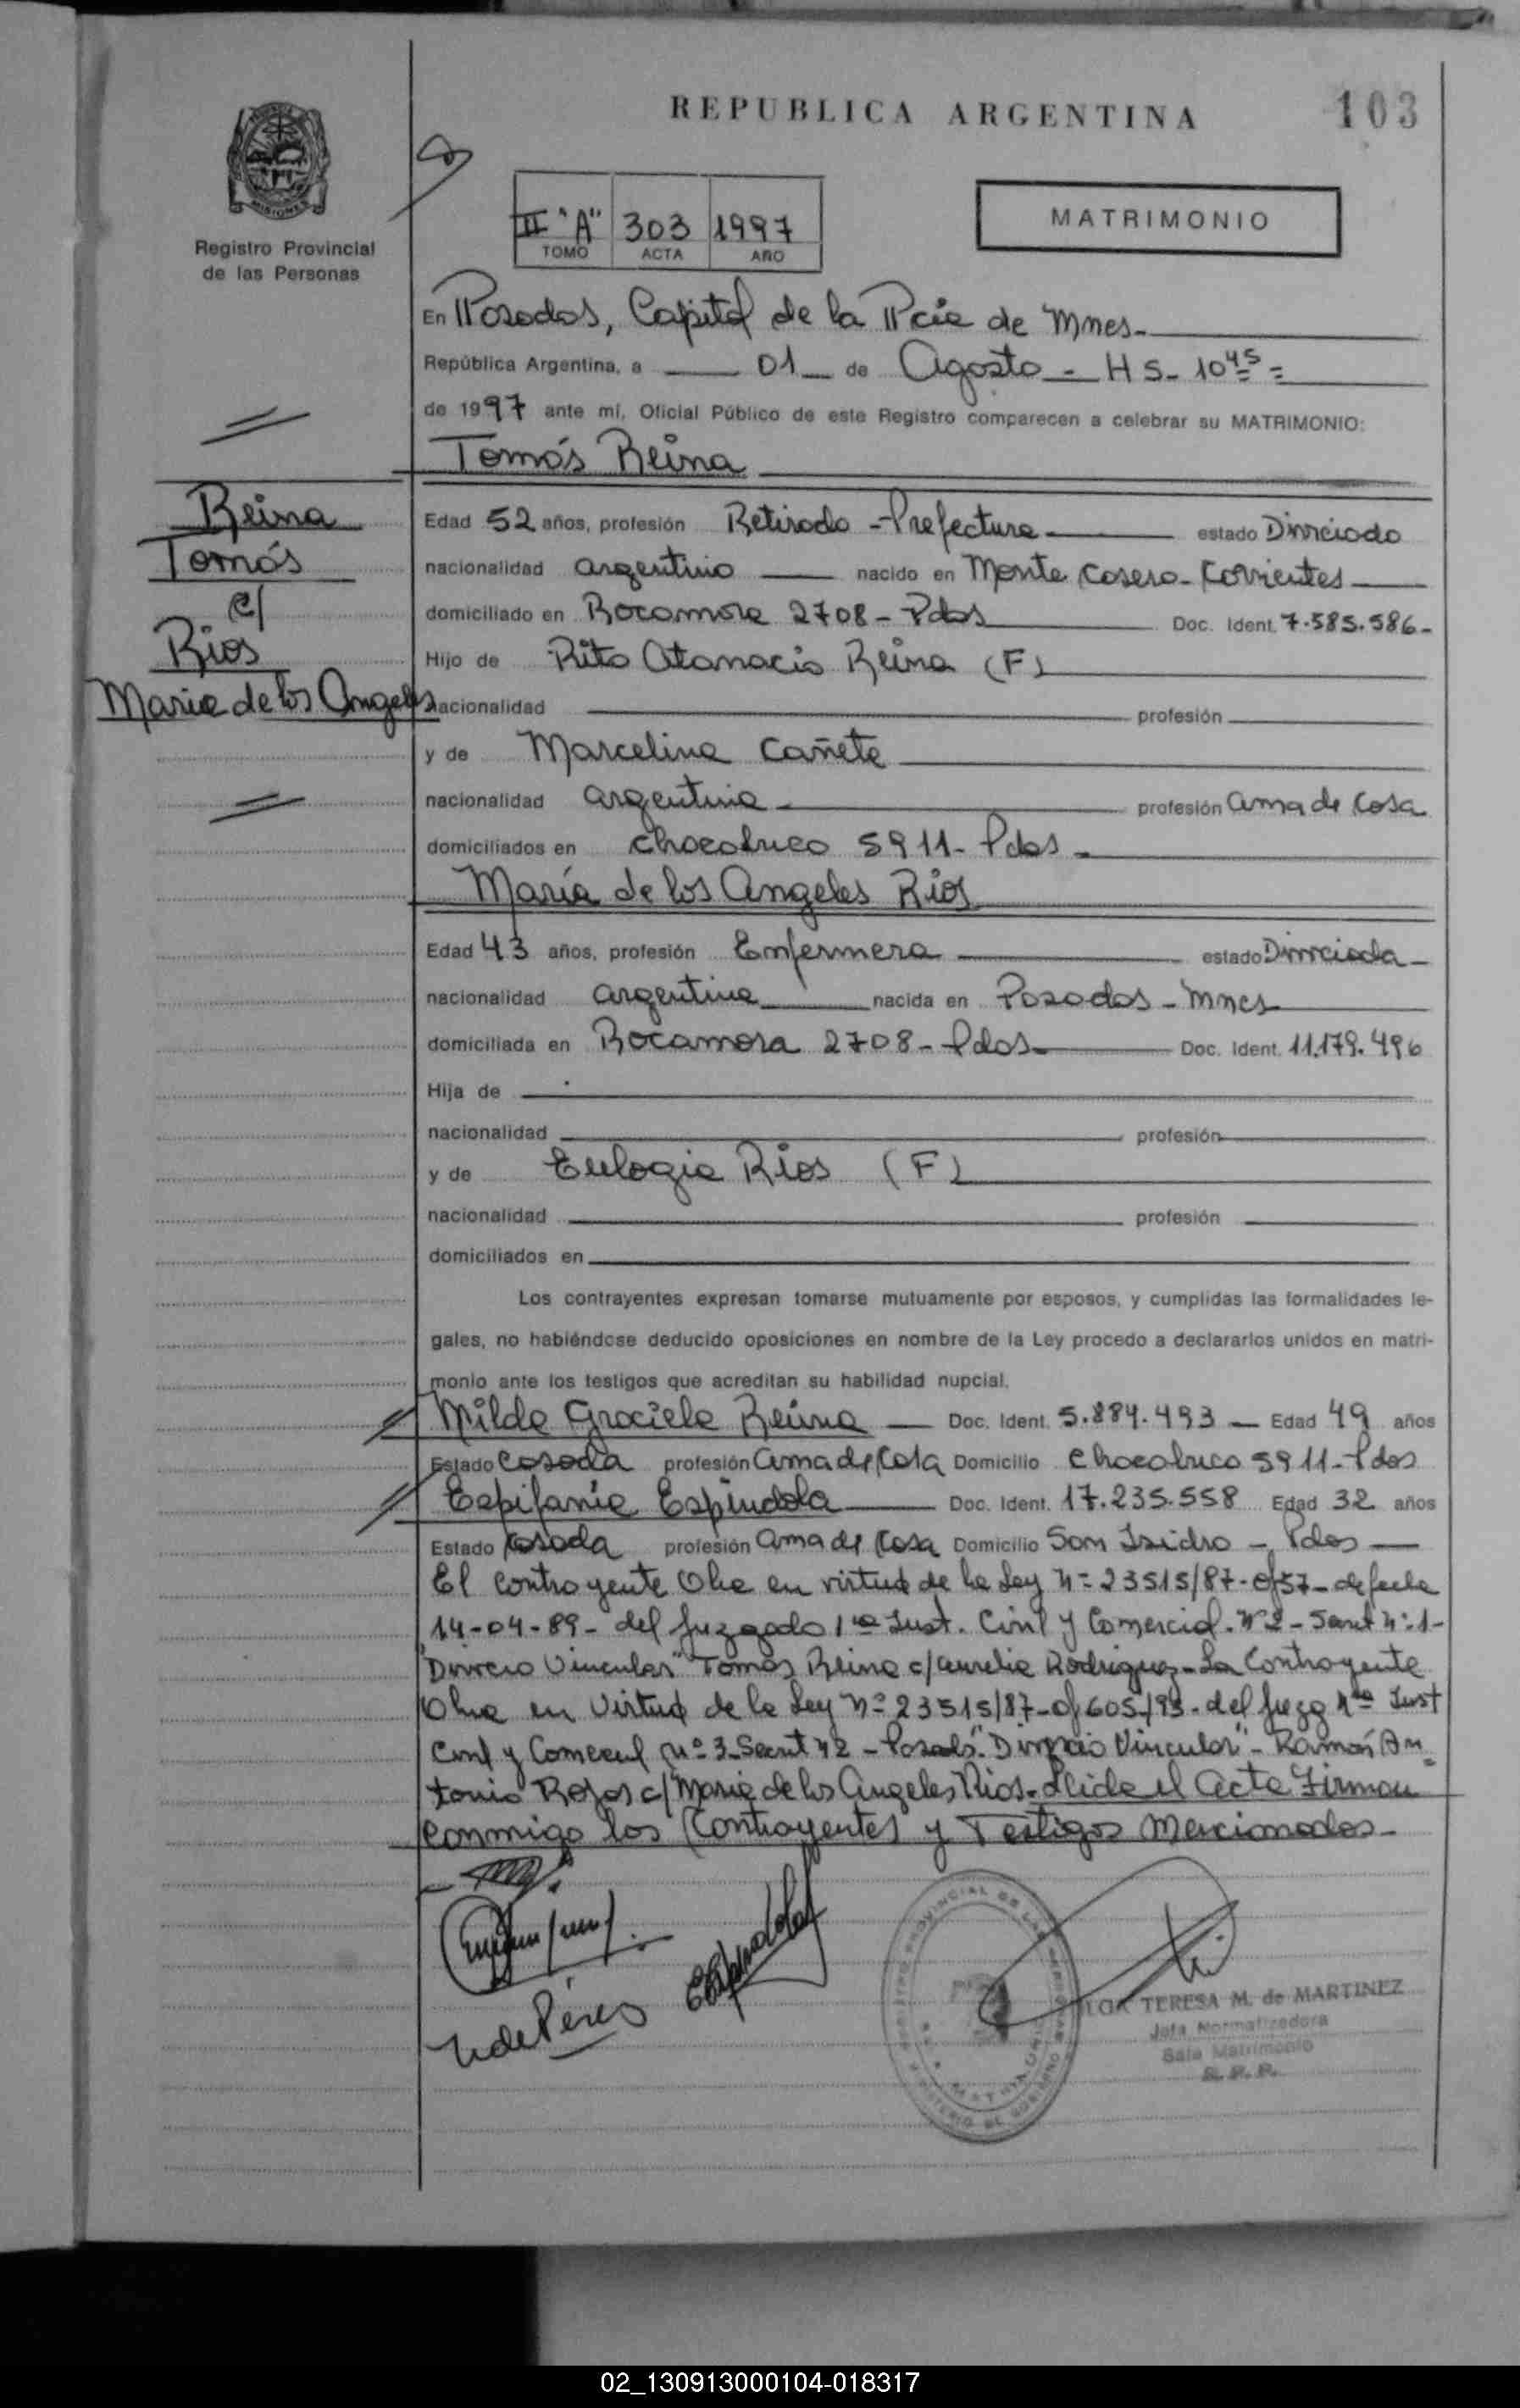 REPUBLICA ARGENTINA
103
MISIONES
Registro Provincial
de las Personas
II "A" 303 1997
TOMO ACTA AÑO
MATRIMONIO
En Posadas, Capital de la Pcia de Mnes-
República Argentina, a 01 de Agosto - HS- 10 45 =
de 1997 ante mí, Oficial Público de este Registro comparecen a celebrar su MATRIMONIO:
Tomás Reina
Reina
Tomás
c/
Rios
Maria de los Angeles
Edad 52 años, profesión Retirado - Prefectura estado Divorciado
nacionalidad argentino nacido en Monte Casero - Corrientes
domiciliado en Rocamora 2708 - Pdas Doc. Ident. 7.585.586-
Hijo de Rito Atanacio Reina (F)
nacionalidad profesión
y de Marcelina Cañete
nacionalidad argentina profesión ama de Casa
domiciliados en Chacabuco 5911 - Pdas -
María de los Angeles Rios
Edad 43 años, profesión Enfermera estado Divorciada -
nacionalidad argentina nacida en Posadas - Mnes
domiciliada en Rocamora 2708 - Pdas - Doc. Ident. 11.179.496
Hija de
nacionalidad profesión
y de Eulogia Rios (F)
nacionalidad profesión
domiciliados en
Los contrayentes expresan tomarse mutuamente por esposos, y cumplidas las formalidades le-
gales, no habiéndose deducido oposiciones en nombre de la Ley procedo a declararlos unidos en matri-
monio ante los testigos que acreditan su habilidad nupcial.
Milda Graciela Reina - Doc. Ident. 5.884.493 - Edad 49 años
Estado Casada profesión ama de Casa Domicilio Chacabuco 5911 - Pdas
Espifania Espindola Doc. Ident. 17.235.558 Edad 32 años
Estado Casada profesión ama de Casa Domicilio San Isidro - Pdas -
El contrayente Obra en virtud de la Ley n= 23515/87 - of 57 - de fecha
14-04-89 - del Juzgado 1ra Inst. Civil y Comercial. Nº 2 - Secret nº: 1-
"Divorcio Vincular" Tomás Reina c/ Aurelia Rodriguez - La Contrayente
Obra en Virtud de la Ley nº 23515/87 - of 605/95 - del Juzg 1ra Inst
Civil y Comercial nº 3 - Secret nº 2 - Posadas "Divorcio Vincular" - Ramón An
tonio Rojas c/ Maria de los Angeles Rios - Leída el Acta Firman
conmigo los Contrayentes y Testigos Mencionados -
N de Pérez
TERESA M. de MARTINEZ
Jefa Normatizadora
Sala Matrimonio
R. P. P.
02_130913000104-018317